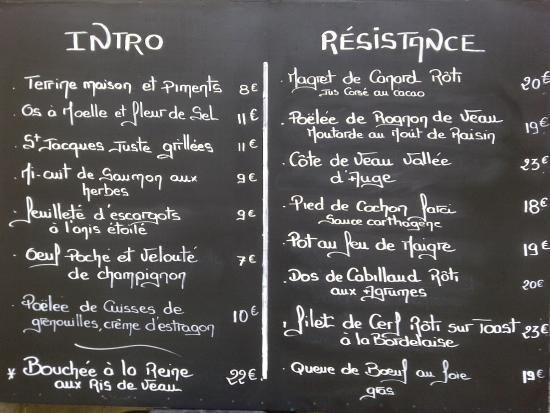 INTRO
. Terrine maison et Piments 8€
. Os à Moelle et fleur de Sel 11€
. St Jacques Juste grillées 11€
. Mi-cuit de Saumon aux 9€
herbes
. feuilleté d'escargots 9€
à l'anis étoilé
. Oeuf Poché et Velouté 7€
de champignon
. Poëlée de Cuisses de 10€
grenouilles, crème d'estragon
* Bouchée à la Reine 22€
aux Ris de Veau
RÉSISTANCE
. Magret de Canard Rôti 20€
Jus Corsé au cacao
. Poëlée de Rognon de Veau 19€
Moutarde au Moût de Raisin
. Côte de Veau Vallée 23€
d'Auge
. Pied de Cochon farci 18€
Sauce carthagène
. Pot au feu de Maigre 19€
. Dos de Cabillaud Rôti 20€
aux Agrumes
. filet de Cerf Rôti sur Toast 23€
à la Bordelaise
. Queue de Boeuf au foie 19€
gras